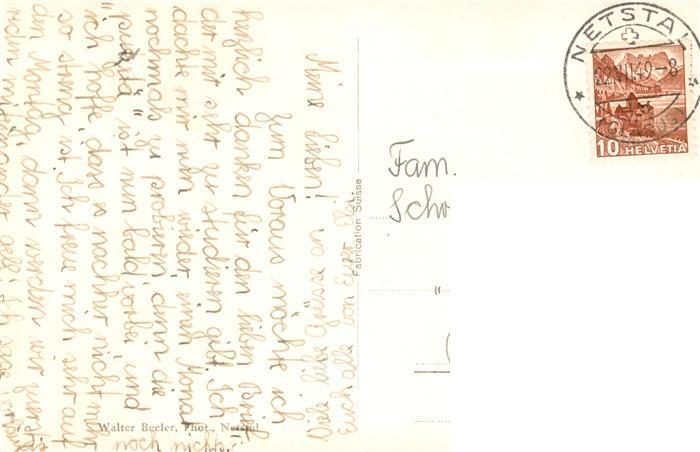 Meine Lieben!
Zum Voraus möchte ich
herzlich danken für den lieben Brief
der mir sehr zu studieren gibt. Ich
dachte mir nun wieder einen Monat
nochmals zu probieren, denn die
ist nun bald vorbei und
ich hoffe, dass es nachher nicht mehr
so streng ist. Ich freue mich sehr auf
den Montag, dann werden wir
reden miteinander
noch nichts
viele liebe Grüsse
Euch alle von Eurer
Walter Beeler, Phot., Netstal
Fabrication Suisse
Fam.
Scho
"
NETSTAL
VII.49-8
(GLARUS)
10 HELVETIA